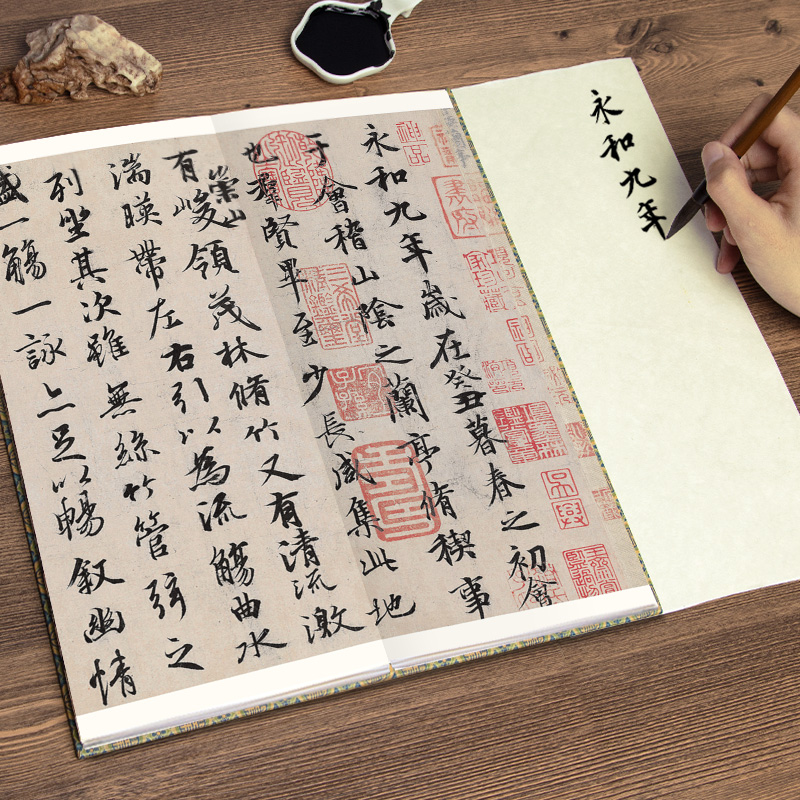 永和九年
永和九年歲在癸丑暮春之初會
于會稽山陰之蘭亭脩稧事
也羣賢畢至少長咸集此地
有崇山峻領茂林脩竹又有清流激
湍暎帶左右引以為流觴曲水
列坐其次雖無絲竹管弦之
盛一觴一詠亦足以暢叙幽情
神品
吳興